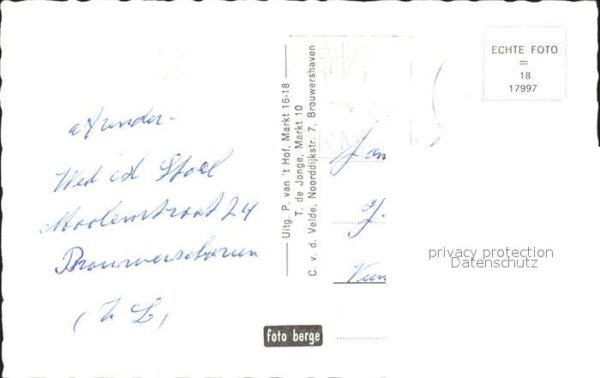 afzender.
Wed v d Stoel
Moolenstraat 24
Brouwershaven
(Z L)
Uitg. P. van 't Hof, Markt 16-18
T. de Jonge, Markt 10
C. v. d. Velde, Noorddijkstr. 7, Brouwershaven
foto berge
ECHTE FOTO
=
18
17997
Jan
privacy protection
Datenschutz